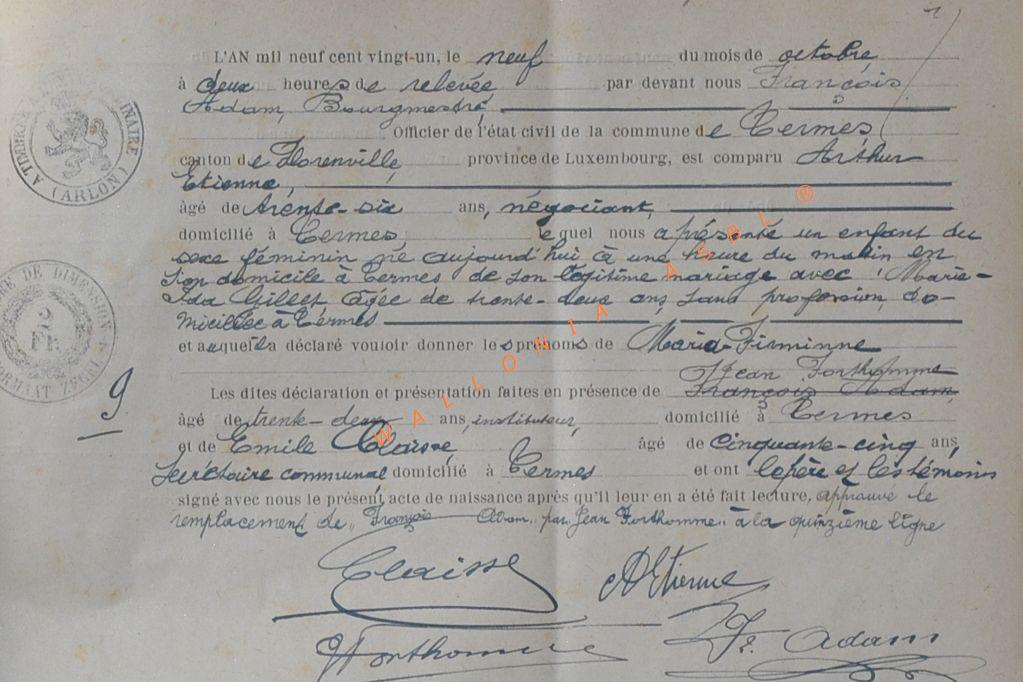 L'AN mil neuf cent vingt-un, le neuf du mois de octobre
à deux heures de relevée par devant nous François
Adam, Bourgmestre,
Officier de l'état civil de la commune de Termes
canton de Florenville, province de Luxembourg, est comparu Arthur
Etienne,
âgé de trente-six ans, négociant,
domicilié à Termes lequel nous a présenté un enfant du
sexe féminin né aujourd'hui à une heure du matin en
son domicile à Termes de son légitime mariage avec Marie-
Ida Gillet âgée de trente-deux ans, sans profession, do-
miciliée à Termes
et auquel il a déclaré vouloir donner les prénoms de Maria-Firminne
Jean Forthomme
Les dites déclaration et présentation faites en présence de François Adam,
âgé de trente-deux ans, instituteur, domicilié à Termes
et de Emile Claisse, âgé de cinquante-cinq ans,
secrétaire communal domicilié à Termes et ont le père et les témoins
signé avec nous le présent acte de naissance après qu'il leur en a été fait lecture, approuvé le
remplacement de "François Adam" par "Jean Forthomme" à la quinzième ligne
Claisse AEtienne
JForthomme Fr. Adam
9
(ARLON)
2
FR.
WALLONIA ASBL ®